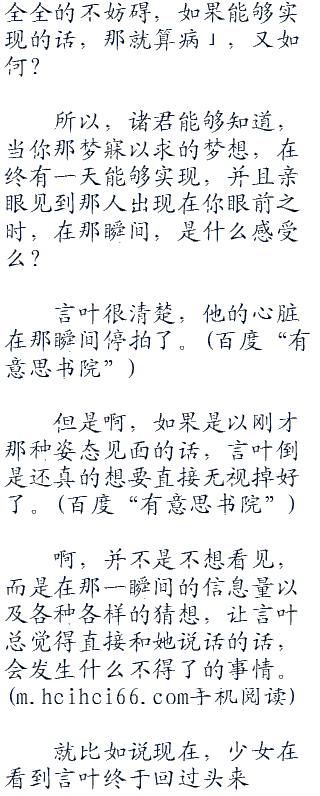 全全的不妨碍，如果能够实
现的话，那就算病」，又如
何？
所以，诸君能够知道，
当你那梦寐以求的梦想，在
终有一天能够实现，并且亲
眼见到那人出现在你眼前之
时，在那瞬间，是什么感受
么？
言叶很清楚，他的心脏
在那瞬间停拍了。(百度“有
意思书院”)
但是啊，如果是以刚才
那种姿态见面的话，言叶倒
是还真的想要直接无视掉好
了。(百度“有意思书院”)
啊，并不是不想看见，
而是在那一瞬间的信息量以
及各种各样的猜想，让言叶
总觉得直接和她说话的话，
会发生什么不得了的事情。
(m.hcihci66.com手机阅读)
就比如说现在，少女在
看到言叶终于回过头来